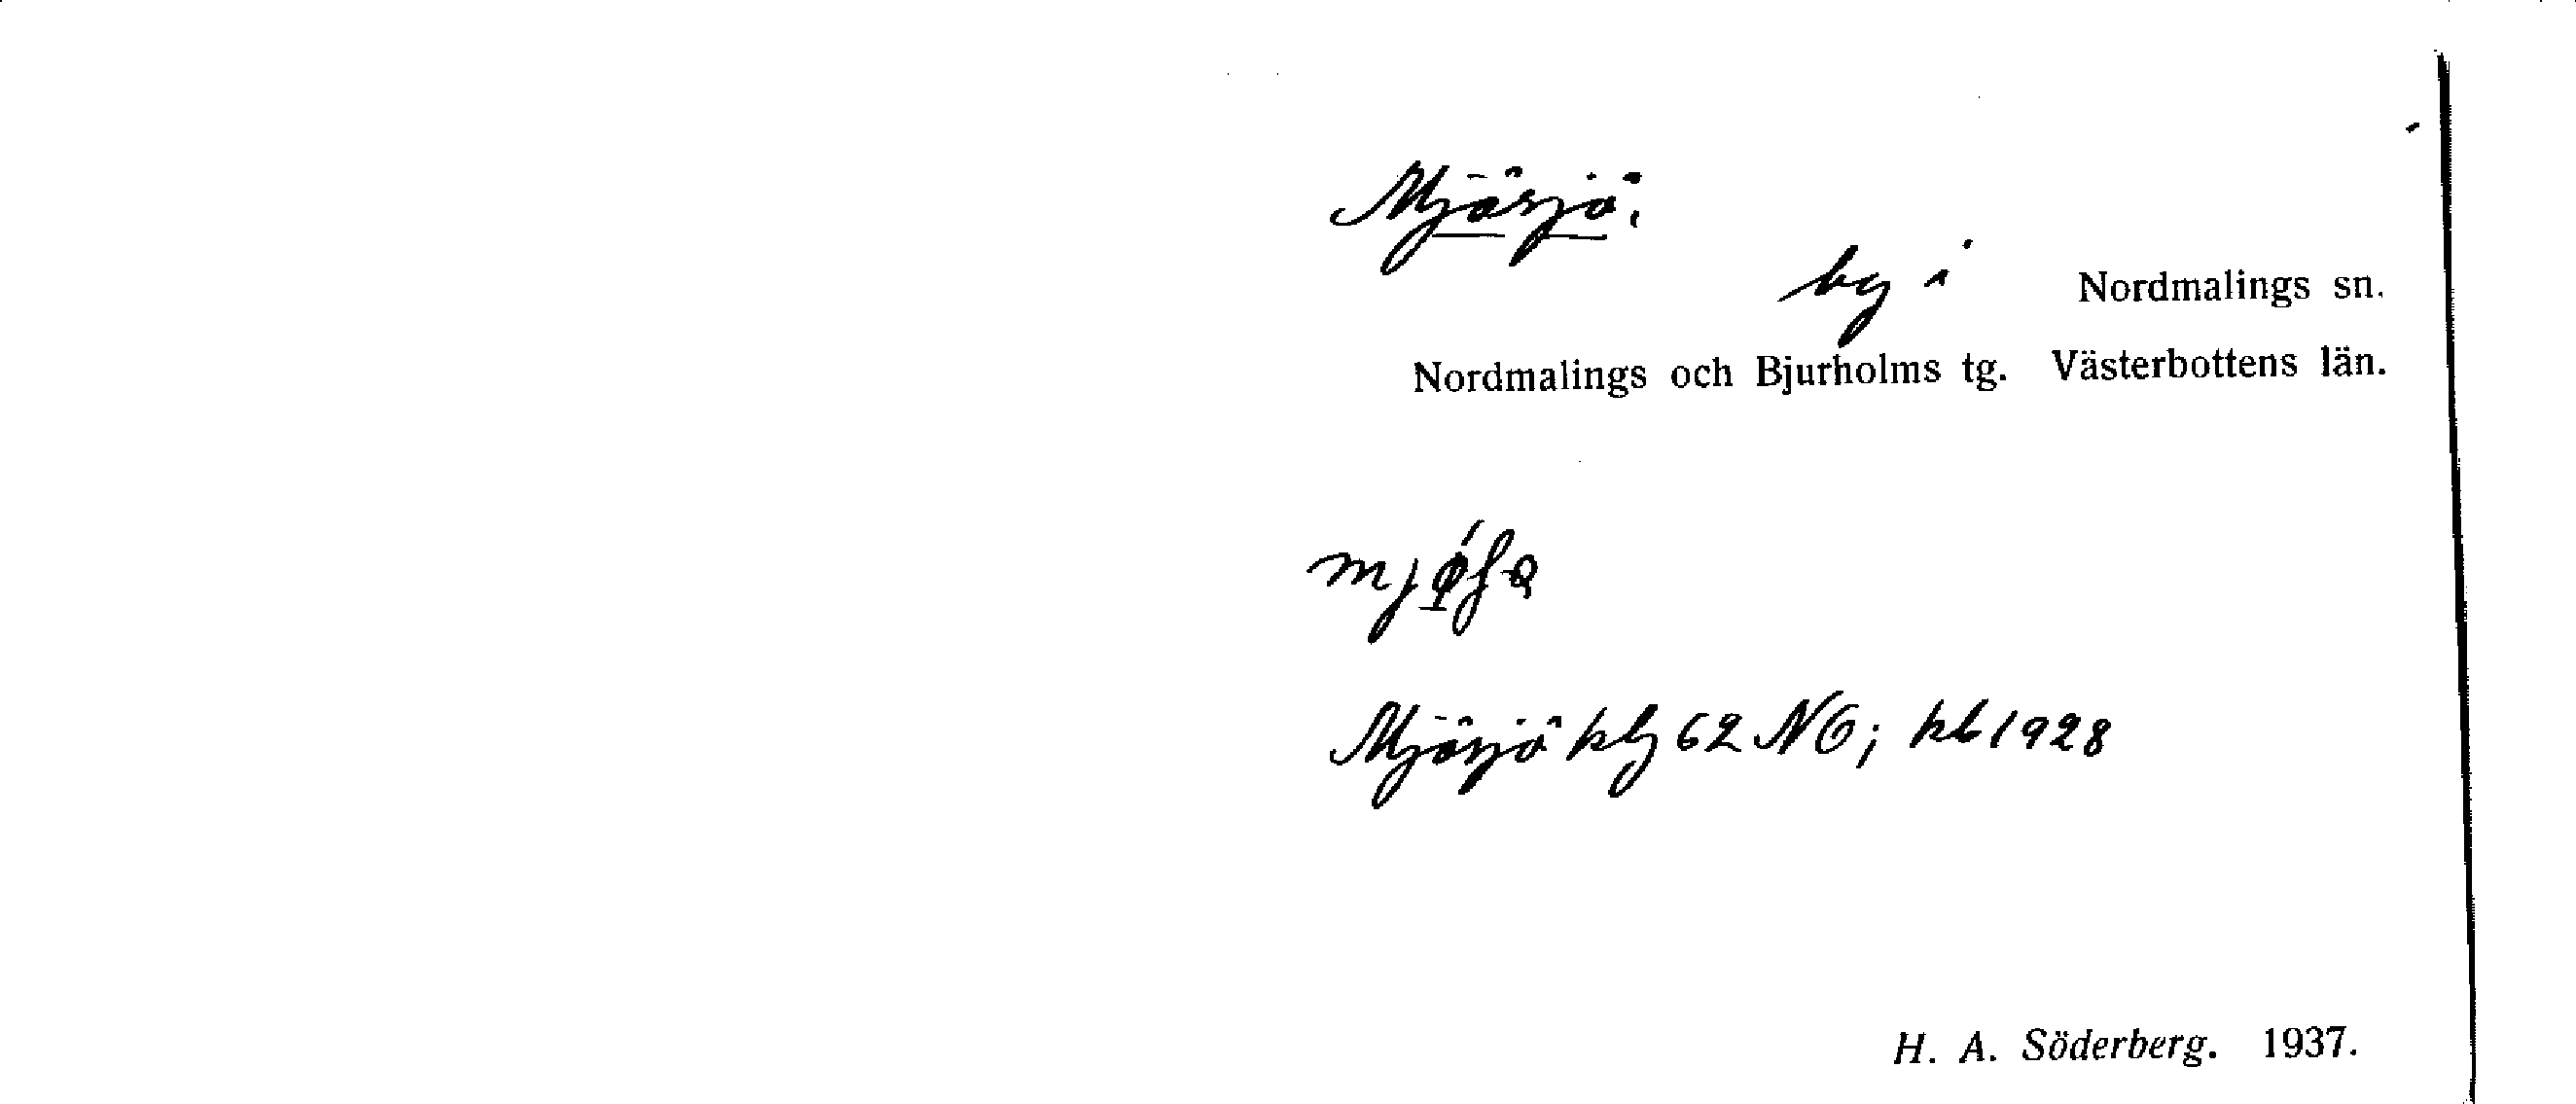 Mjösjö.
by i Nordmalings sn.
Nordmalings och Bjurholms tg. Västerbottens län.
Mjösjö kbl 62 NO; kb 1928
H. A. Söderberg. 1937.